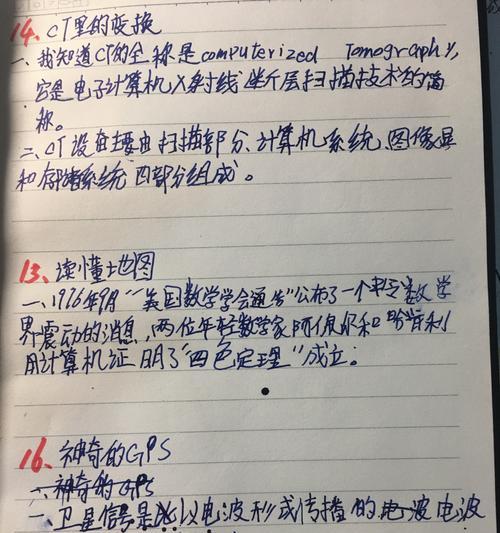 14. CT里的变换
一、我知道CT的全称是computerized Tomography,
它是电子计算机X射线断层扫描技术的简
称。
二、CT设备主要由扫描部分、计算机系统、图像显
和存储系统四部分组成。
13. 读懂地图
一、1976年9月"美国数学学会通告"公布了一个令数学
界震动的消息,两位年轻数学家阿佩尔和哈肯利
用计算机证明了"四色定理"成立。
16. 神奇的GPS
一、神奇的GPS
一、卫星信号是以电波形式传播的电波电波